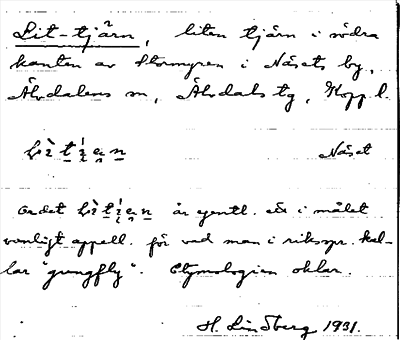 Lit-tjärn, liten tjärn i södra
kanten av Stormyren i Näsets by,
Älvdalens sn, Älvdals tg, Kopp. l.
Näset
Ordet är egentl. ett i målet
vanligt appell. för vad man i riksspr. kal-
lar "gungfly". Etymologien oklar.
H. Lindberg 1931.